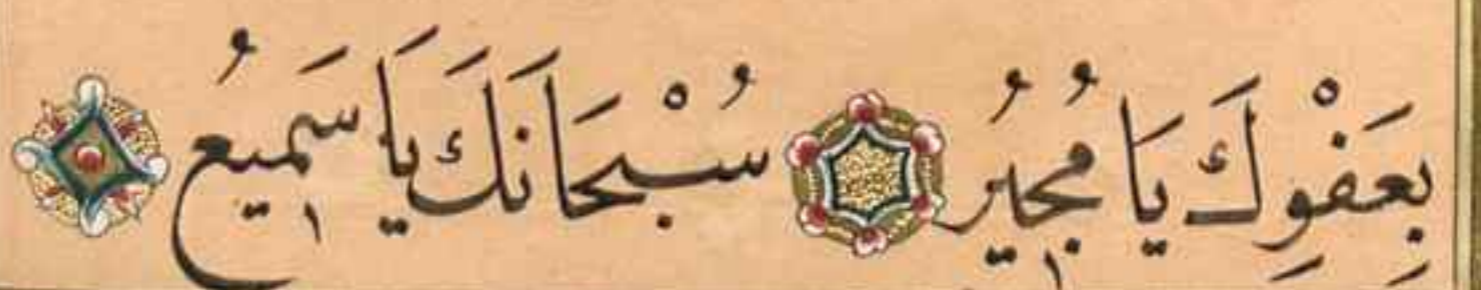 بِعَفْوِكَ يَا مُجِيرُ سُبْحَانَكَ يَا سَمِيعُ